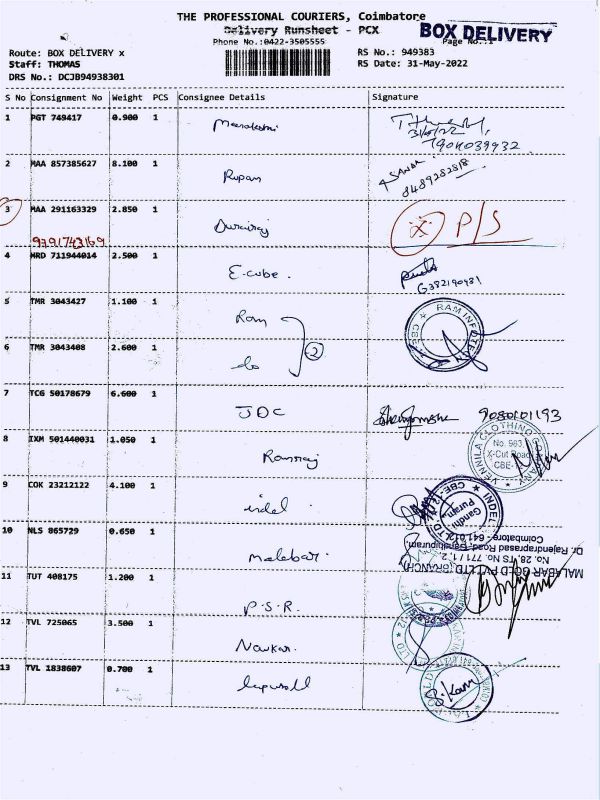 THE PROFESSIONAL COURIERS, Coimbatore
Delivery Runsheet - PCX
BOX DELIVERY
Phone No.:0422-3505555
Page No.:1
Route: BOX DELIVERY x
RS No.: 949383
Staff: THOMAS
RS Date: 31-May-2022
DRS No.: DCJB94938301
S No Consignment No Weight PCS Consignee Details Signature
1 PGT 749417 0.900 1 Meenakshi
31/5/22
7904039932
2 MAA 857385627 8.100 1 Rupam
8489282818
3 MAA 291163329 2.850 1 Durairaj X P/S
9791743169
4 HRD 711944014 2.500 1 E-cube.
5 TMR 3043427 1.100 1 Ram RAM INFOTECH
6 TMR 3043408 2.600 1 do 2
7 TCG 50178679 6.600 1 JDC 9080101193
8 IXM 501440031 1.050 1 Ramraj
VENNILA CLOTHING COMPANY
No. 983,
X-Cut Road
CBE-12
9 COK 23212122 4.100 1 indel
INDEL
Gandhi
Puram
CBE-12
10 NLS 865729 0.650 1 Malabar
MALABAR GOLD PVT LTD (BRANCH)
No. 28, TS No. 77/1/1, 2,
Dr. Rajendraprasad Road, Gandhipuram,
Coimbatore - 641 012
11 TUT 408175 1.200 1 P.S.R.
12 TVL 725065 3.500 1 Navkar.
13 TVL 1838607 0.700 1